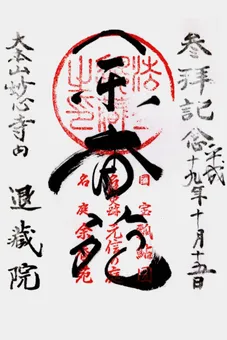 参拝記念
平成十九年十月十五日
余香苑
国宝瓢鮎図
名勝元信の庭
名庭余香苑
大本山妙心寺内
退蔵院